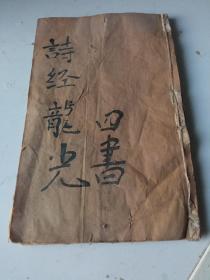 四書
詩经龍光